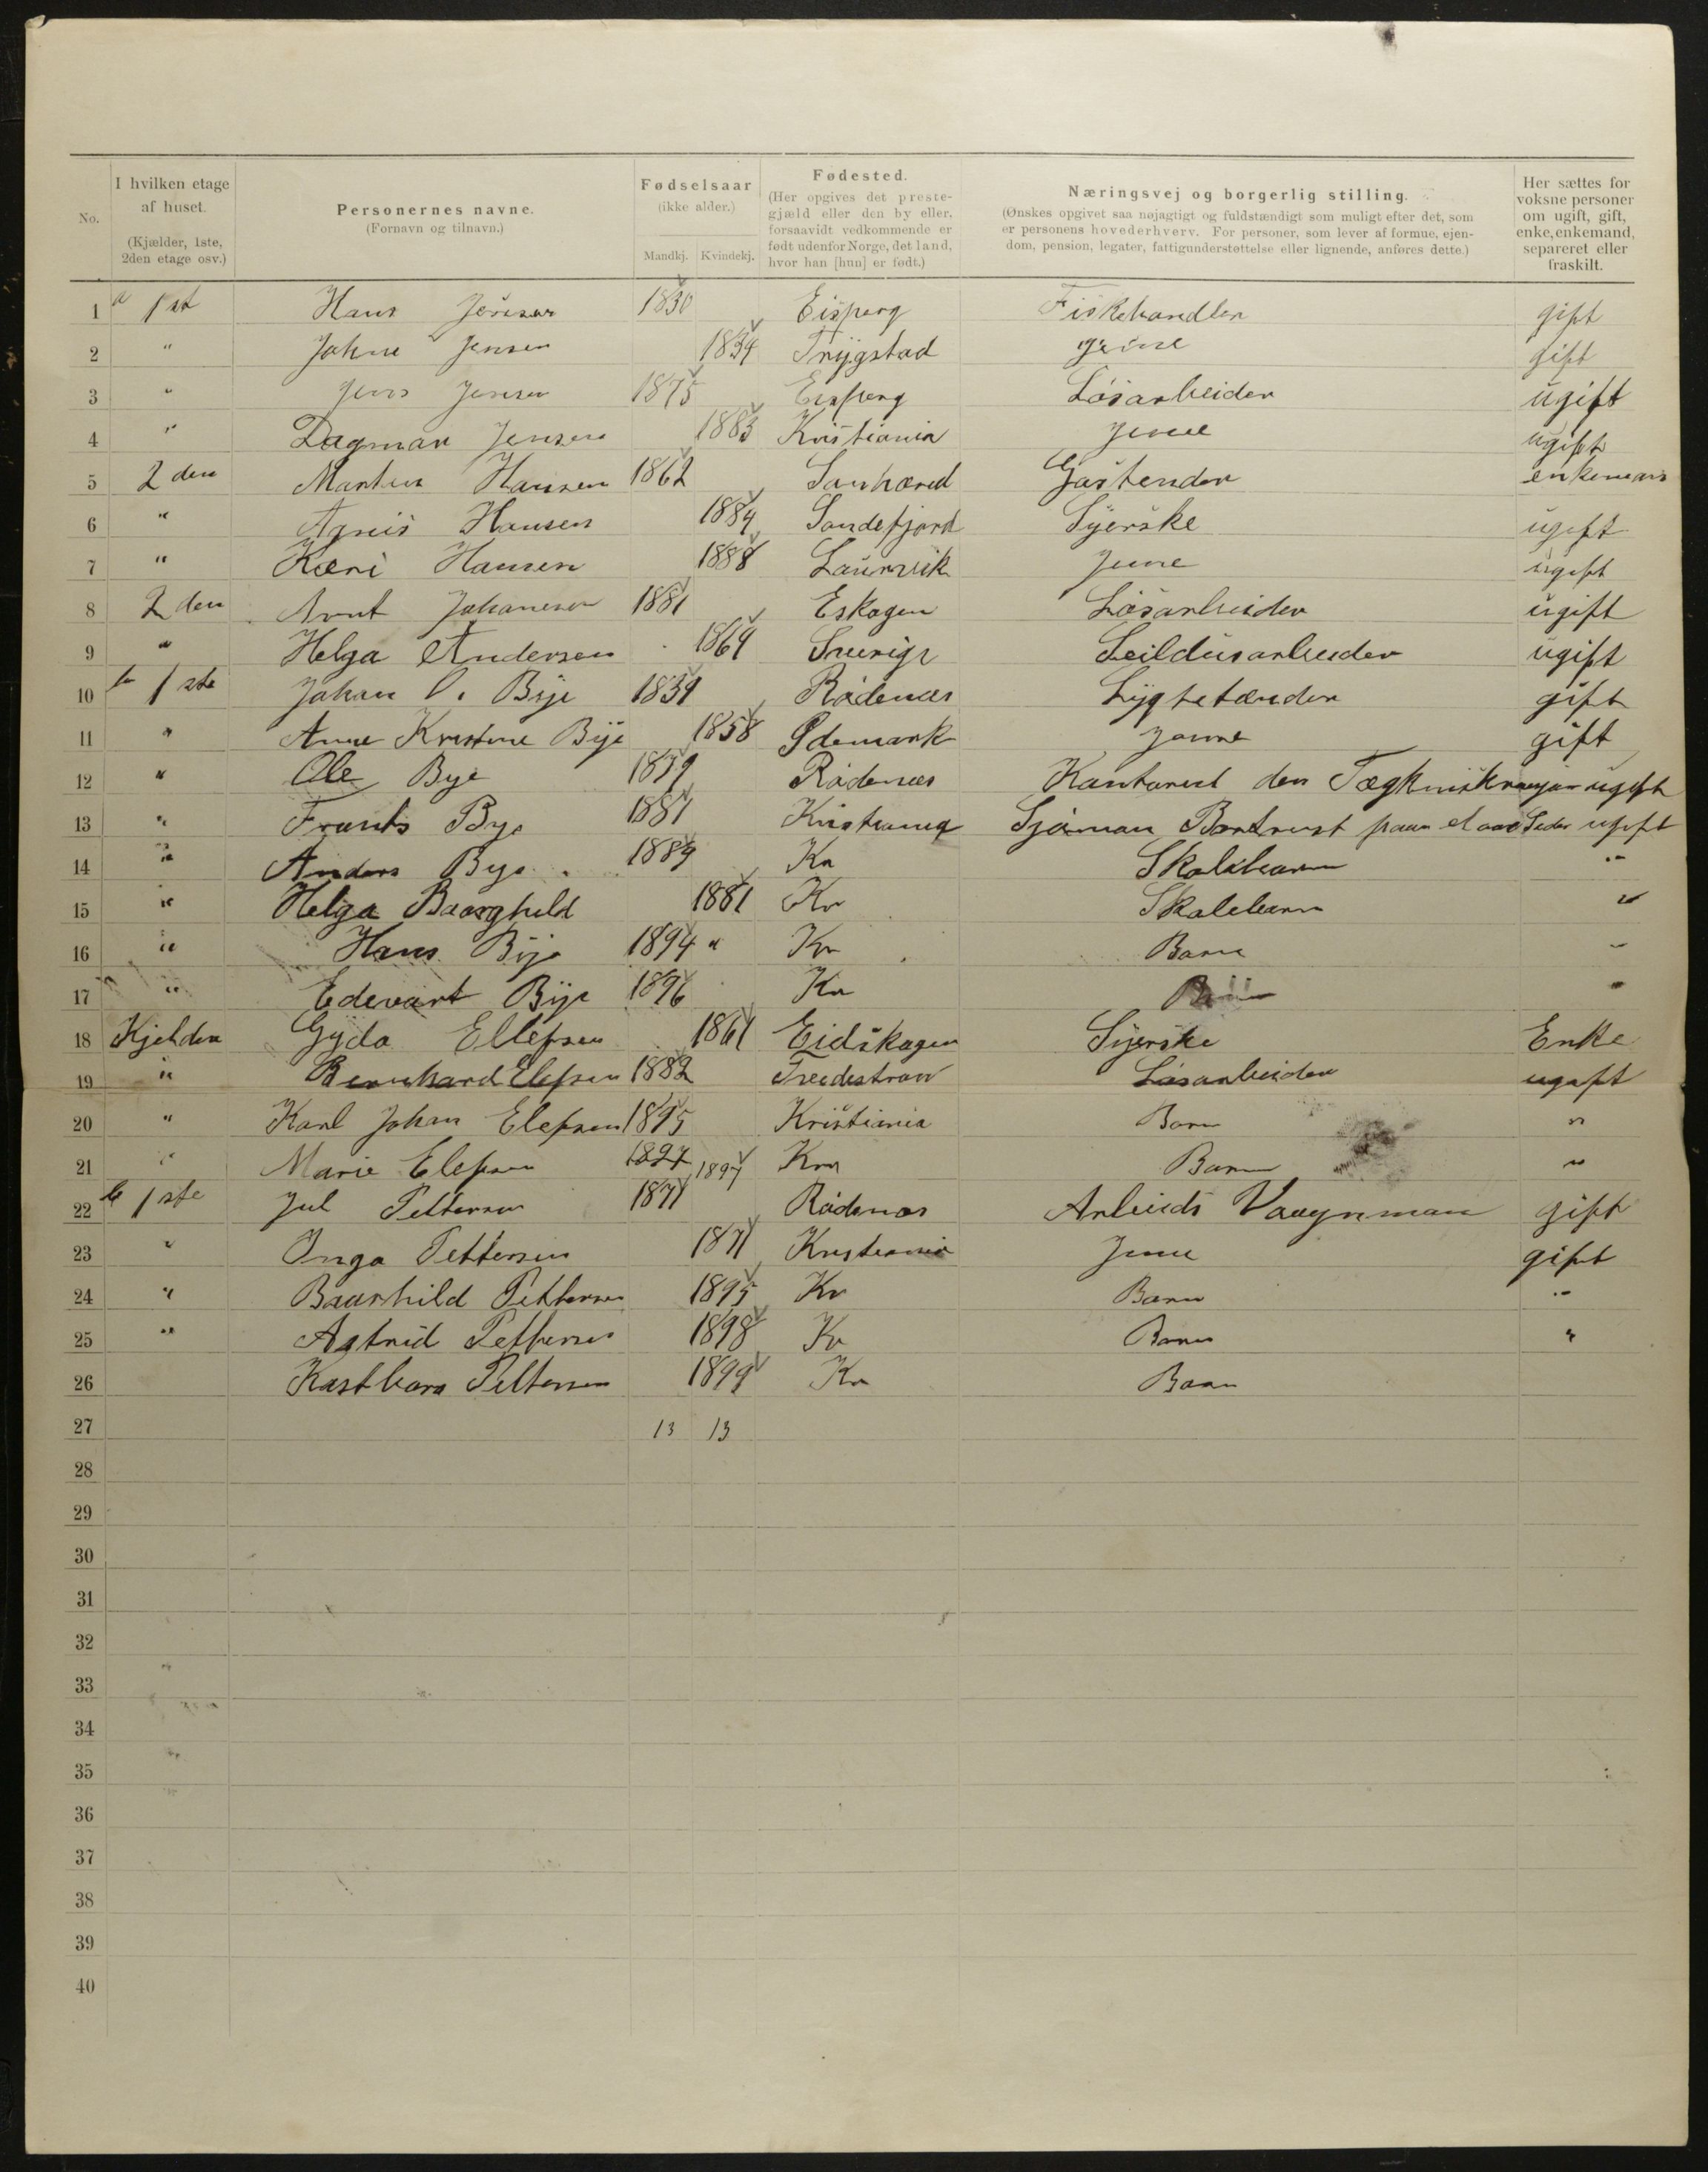 No.
I hvilken etage af huset. (Kjælder, 1ste, 2den etage osv.)
Personernes navne. (Fornavn og tilnavn.)
Fødselsaar (ikke alder.) Mandkj. Kvindekj.
Fødested. (Her opgives det prestegjæld eller den by eller, forsaavidt vedkommende er født udenfor Norge, det land, hvor han [hun] er født.)
Næringsvej og borgerlig stilling. (Ønskes opgivet saa nøjagtigt og fuldstændigt som muligt efter det, som er personens hovederhverv. For personer, som lever af formue, ejendom, pension, legater, fattigunderstøttelse eller lignende, anføres dette.)
Her sættes for voksne personer om ugift, gift, enke, enkemand, separeret eller fraskilt.
1 a 1st Hans Jensen 1830 Eisperg Fiskehandler gift
2 " Johne Jensen 1834 Trygstad gift
3 " Jens Jensen 1875 Eisperg Løsarbeider ugift
4 " Dagmar Jensen 1883 Kristiania ugift
5 2den Martin Hansen 1862 Sanhæred Gastender
6 " Agnis Hansen 1884 Sandefjord Syerske ugift
7 " Kæri Hansen 1888 Laurvik ugift
8 2den Arnt Johanesen 1881 Eskogen Løsarbeider ugift
9 " Helga Andersen 1864 Sverige Seildusarbeider ugift
10 b 1ste Johan O. Bye 1839 Rødenæs Lygtetænder gift
11 " Anne Kristine Bye 1858 Ødemark gift
12 " Ole Bye 1879 Rødenæs Kontorist den ugift
13 " Frants Bye 1881 Kristiania Sjøman ugift
14 " Anders Bye 1889 Kr Skolebarn "
15 " Helga Baarghild 1881 Kr Skolebarn "
16 " Hans Bye 1894 " Kr Barn "
17 " Edevart Bye 1896 Kr Barn "
18 Kjelder Gyda Ellefsen 1861 Eidskogen Syerske Enke
19 " Bernhard Elefsen 1882 Løsarbeider ugift
20 " Karl Johan Elefsen 1895 Kristiania Barn "
21 " Marie Elefsen 1897 1897 Kra Barn "
22 b 1ste Jul Pettersen 1871 Rødenæs Arbeids Vaagnman gift
23 " Inga Pettersen 1871 Kristiania gift
24 " Baarhild Pettersen 1895 Kr Barn "
25 " Astrid Pettersen 1898 Kr Barn "
26 Pettersen 1899 Kr Barn
27 13 13
28
29
30
31
32
33
34
35
36
37
38
39
40